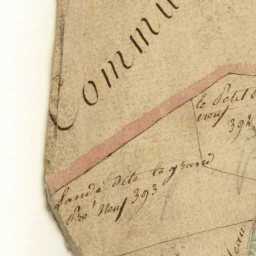 Commu
le Petit
neuf
392
Lande dite le grand
Pré Neuf 393